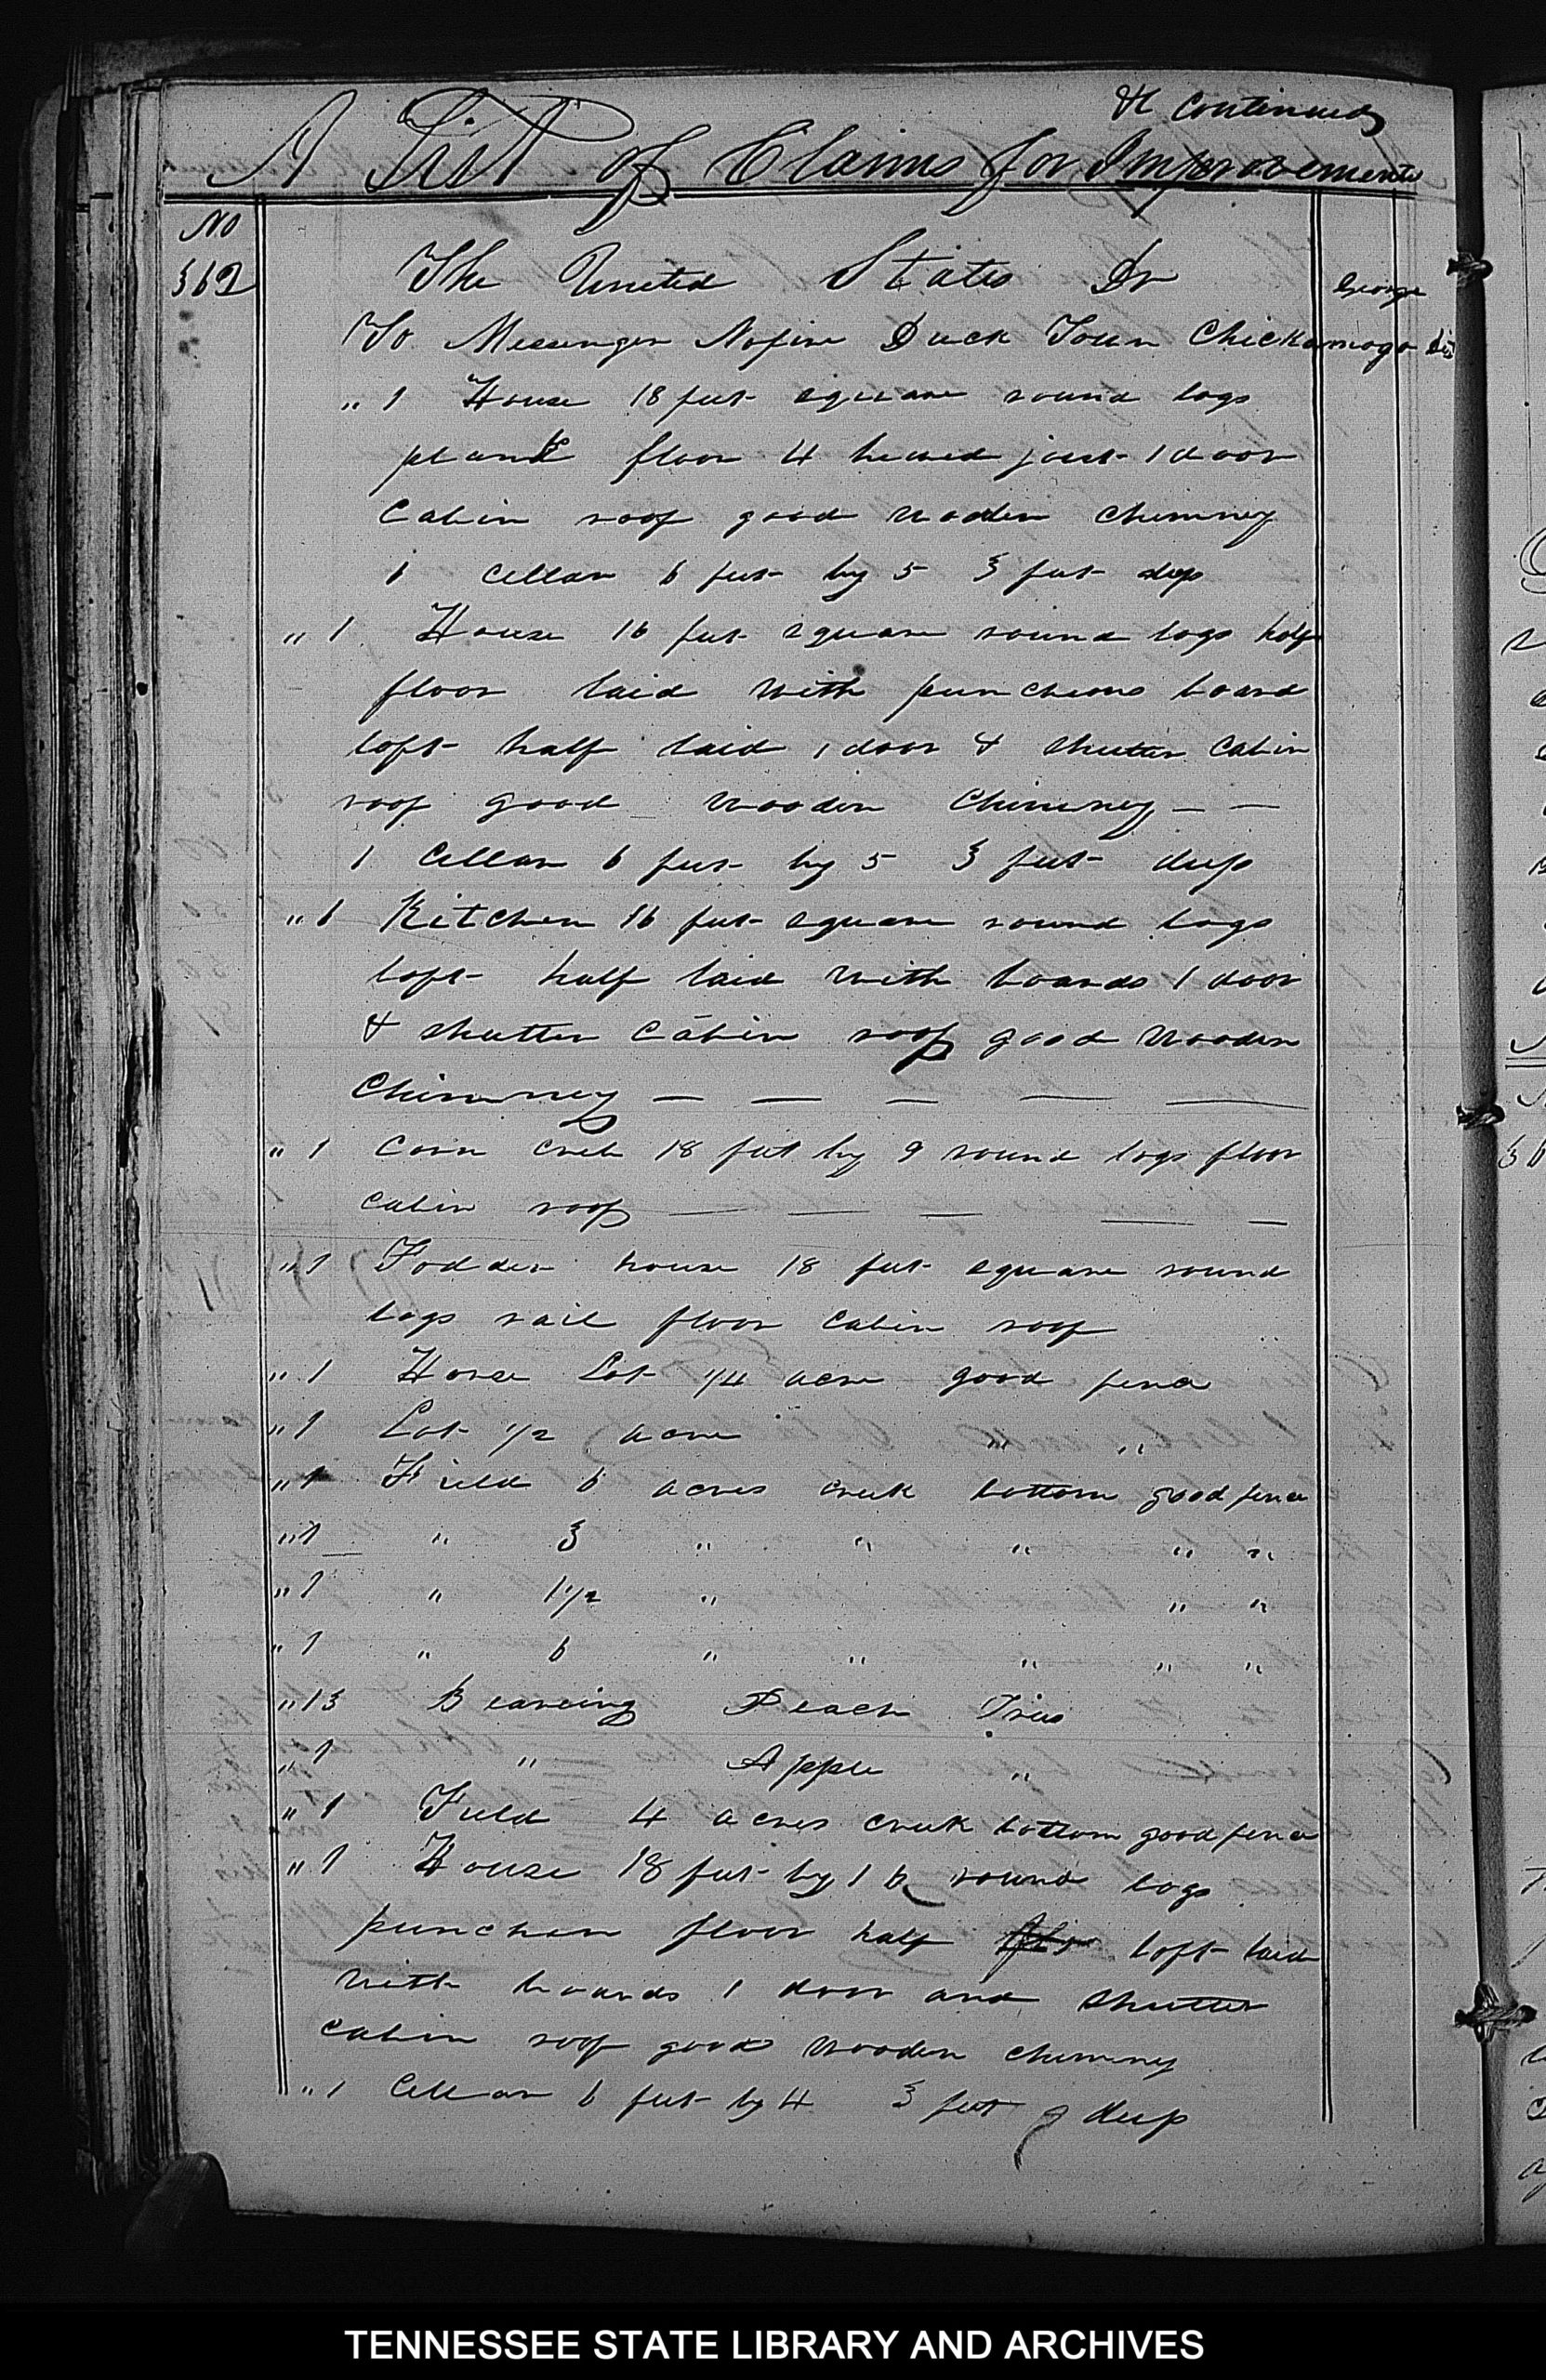 &c Continued
A List of Claims for Improvements
No
362
The United States Dr
George
To Messenger Nofire Duck Town Chickamoga Dis
„ 1 House 18 feet square round logs
plank floor 4 hewed joist 1 door
Cabin roof good wooden chimney
1 Cellar 6 feet by 5 3 feet deep
„ 1 House 16 feet square round logs half
floor laid with puncheons board
loft half laid 1 door & shutter Cabin
roof good wooden Chimney — —
1 Cellar 6 feet by 5 3 feet deep
„ 1 Kitchen 16 feet square round logs
loft half laid with boards 1 door
& shutter Cabin roof good wooden
Chimney — — — — —
„ 1 Corn Crib 18 feet by 9 round logs floor
Cabin roof — — — — —
„ 1 Fodder house 18 feet square round
logs rail floor Cabin roof
„ 1 Horse Lot 1/4 acre good fence
„ 1 Lot 1/2 acre „ „
„ 1 Field 6 acres creek bottom good fence
„ 1 „ 3 „ „ „ „ „
„ 1 „ 1 1/2 „ „ „
„ 1 „ 6 „ „ „ „ „
„ 13 Beareing Peach Trees
„ 1 „ Apple „
„ 1 Field 4 acres creek bottom good fence
„ 1 House 18 feet by 16 round logs
punchen floor half loft laid
with boards 1 door and shutter
Cabin roof good wooden chimney
„ 1 Cellar 6 feet by 4 3 feet deep
TENNESSEE STATE LIBRARY AND ARCHIVES